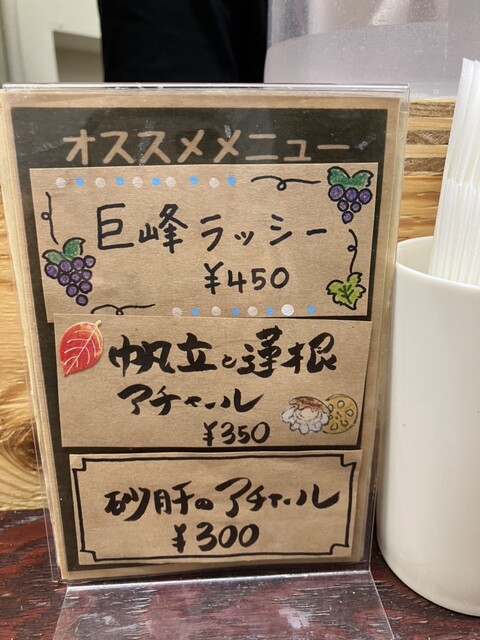 オススメメニュー
巨峰ラッシー
¥450
帆立と蓮根
アチャール
¥350
砂肝のアチャール
¥300